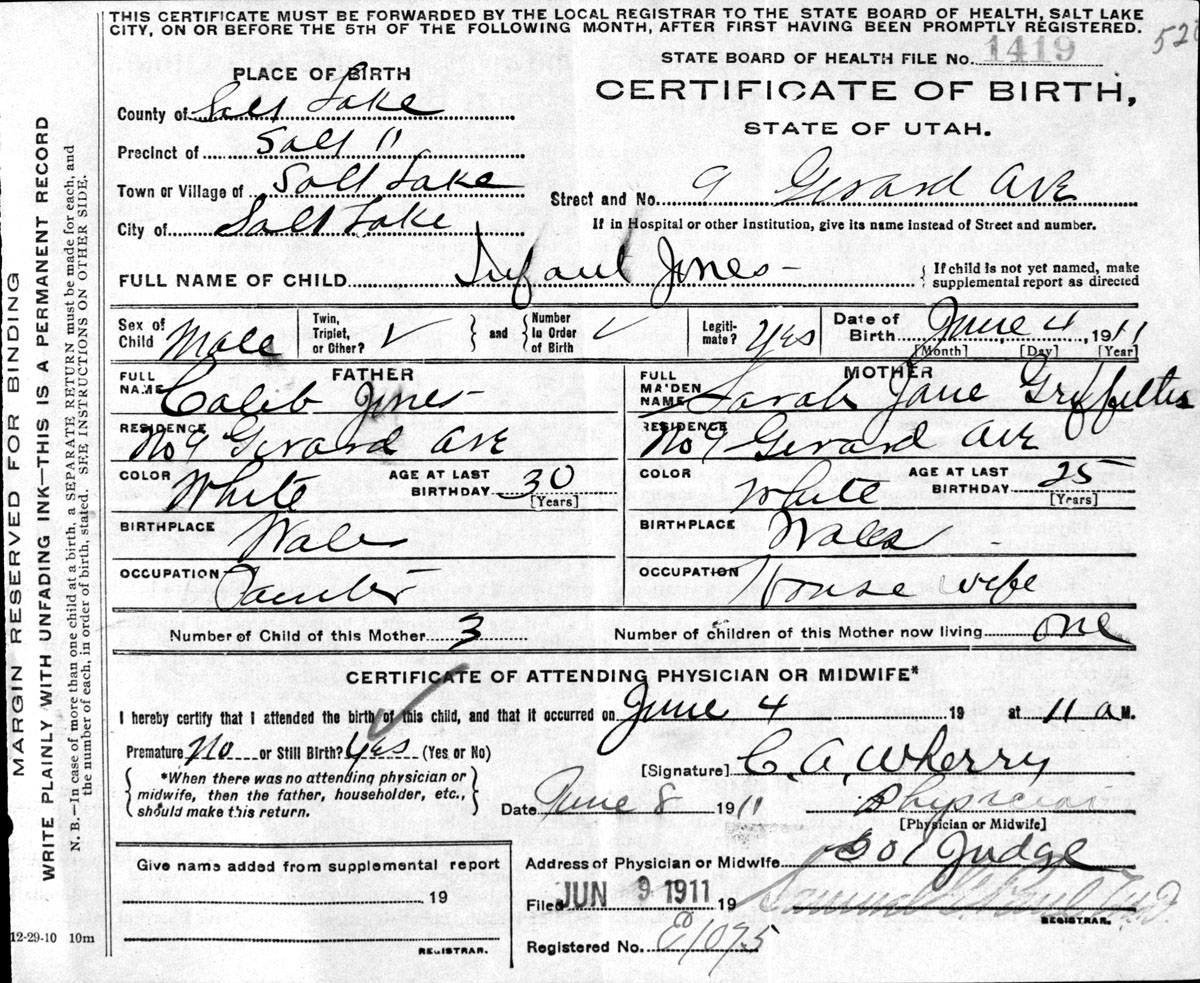 THIS CERTIFICATE MUST BE FORWARDED BY THE LOCAL REGISTRAR TO THE STATE BOARD OF HEALTH, SALT LAKE
CITY, ON OR BEFORE THE 5TH OF THE FOLLOWING MONTH, AFTER FIRST HAVING BEEN PROMPTLY REGISTERED.
STATE BOARD OF HEALTH FILE No. 1419
PLACE OF BIRTH
CERTIFICATE OF BIRTH,
STATE OF UTAH.
County of Salt Lake
Precinct of Salt "
Town or Village of Salt Lake
City of Salt Lake
Street and No. 9 Girard Ave
If in Hospital or other Institution, give its name instead of Street and number.
FULL NAME OF CHILD Infant Jones
If child is not yet named, make
supplemental report as directed
Sex of Child Male
Twin, Triplet, or Other? and Number In Order of Birth
Legitimate? Yes
Date of Birth June 4, 1911
[Month] [Day] [Year]
FATHER
FULL NAME Caleb Jones
RESIDENCE No 9 Girard Ave
COLOR White AGE AT LAST BIRTHDAY 30 [Years]
BIRTHPLACE Wales
OCCUPATION
MOTHER
FULL MAIDEN NAME Sarah Jane Griffiths
RESIDENCE No 9 Girard Ave
COLOR White AGE AT LAST BIRTHDAY 25 [Years]
BIRTHPLACE Wales
OCCUPATION House wife
Number of Child of this Mother 3 Number of children of this Mother now living one
CERTIFICATE OF ATTENDING PHYSICIAN OR MIDWIFE*
I hereby certify that I attended the birth of this child, and that it occurred on June 4 19 at 11 a M.
Premature No or Still Birth? Yes (Yes or No)
*When there was no attending physician or
midwife, then the father, householder, etc.,
should make this return.
[Signature] C. A. Wherry
Date June 8 1911 Physician
[Physician or Midwife]
Give name added from supplemental report
19
REGISTRAR.
Address of Physician or Midwife 501 Judge
Filed JUN 9 1911 19
REGISTRAR.
Registered No. 1095
12-29-10 10m
MARGIN RESERVED FOR BINDING
WRITE PLAINLY WITH UNFADING INK—THIS IS A PERMANENT RECORD
N. B.—In case of more than one child at a birth, a SEPARATE RETURN must be made for each, and
the number of each, in order of birth, stated. SEE INSTRUCTIONS ON OTHER SIDE.